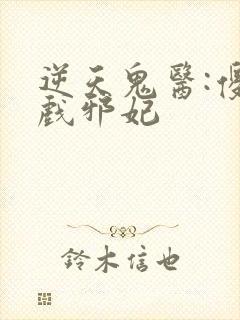 逆天鬼醫:優
戲邪妃
鈴木信也